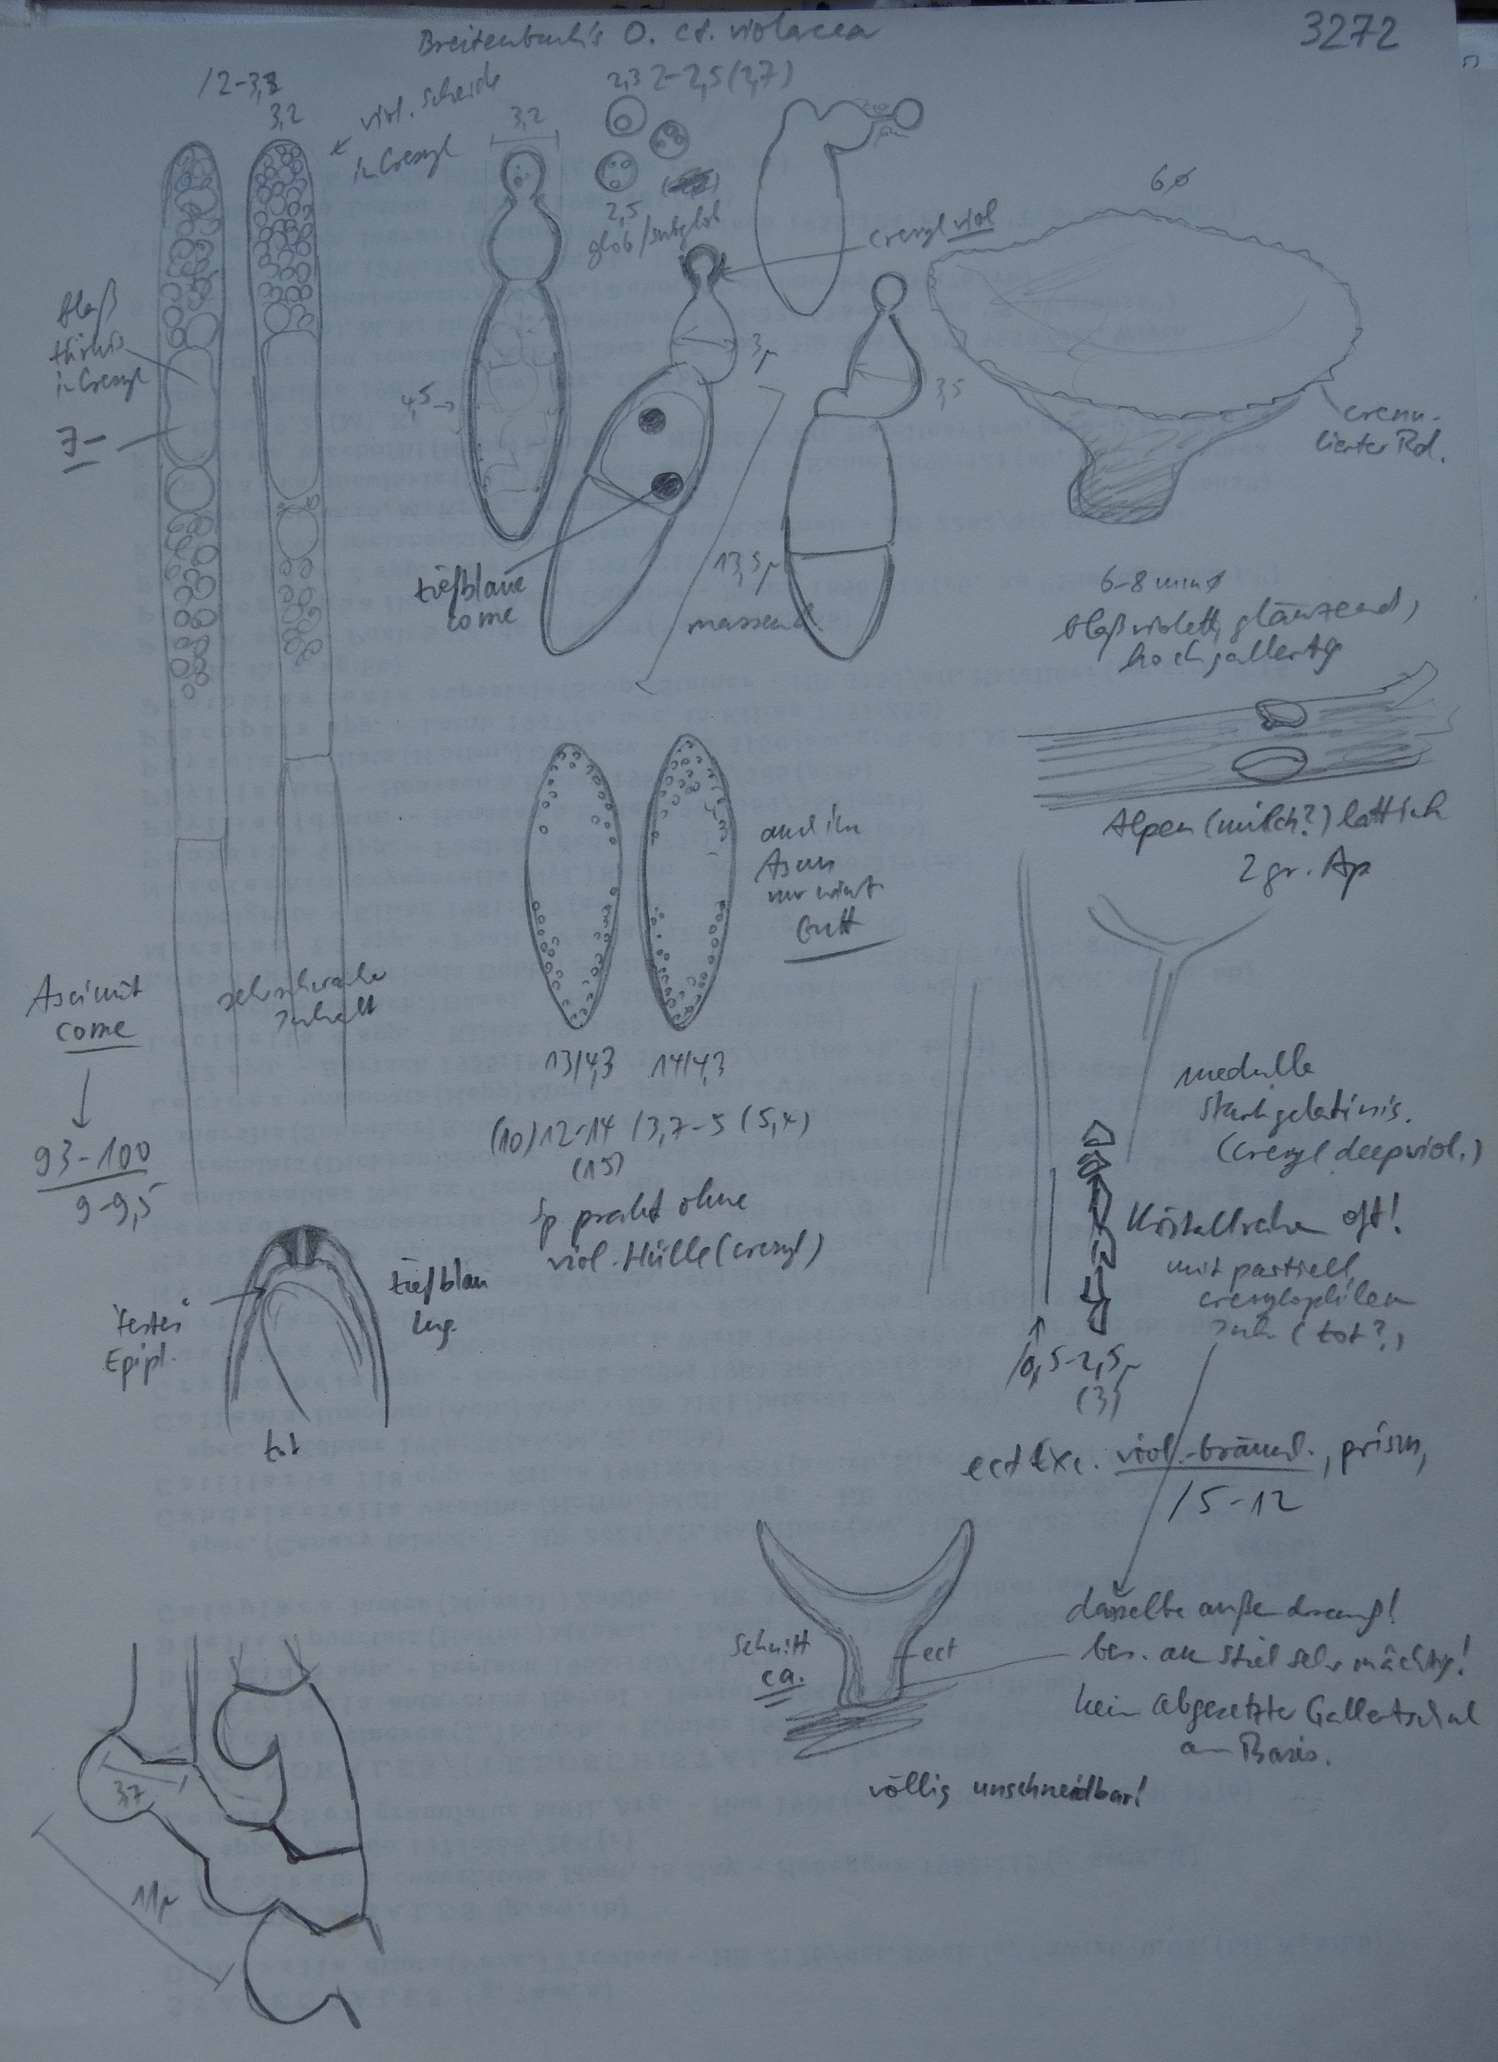 Breitenbach's O. cf. violacea
3272
/2-3,2
3,2
viol. Scheide
in Cresyl
3,2
2,3 2-2,5 (2,7)
2,5
glob/subglob
cresyl viol
6ø
blaß
türkis
in Cresyl
J-
4,5
3µ
3,5
crenu-
lierter Rd.
tiefblaue
come
13,5µ
massenh.
6-8 mm ø
blaßviolett, glänzend,
hochgallertig
Alpen(milch?)lattich
2 gr. Ap
auch im
Ascus
nur mit
Gutt
Asci mit
come
93-100
9-9,5
sehr schwacher
Inhalt
13/4,3
14/4,3
(10)12-14 /3,7-5 (5,4)
(15)
Sp prakt ohne
viol. Hülle (Cresyl)
medulla
stark gelatinis.
(Cresyl deep viol.)
Kristallreihen oft!
mit partiell
cresylophilem
Inh. (tot?)
/0,5-2,5µ
(3)
festes
Epipl.
tiefblau
Lug.
tot
ect Exc. viol.-bräunl., prism,
/5-12
Schnitt
ca.
ect
dasselbe außen drauf!
bes. am Stiel sehr mächtig!
kein abgesetzter Gallertstiel
an Basis.
völlig unschneidbar!
3,7
11µ